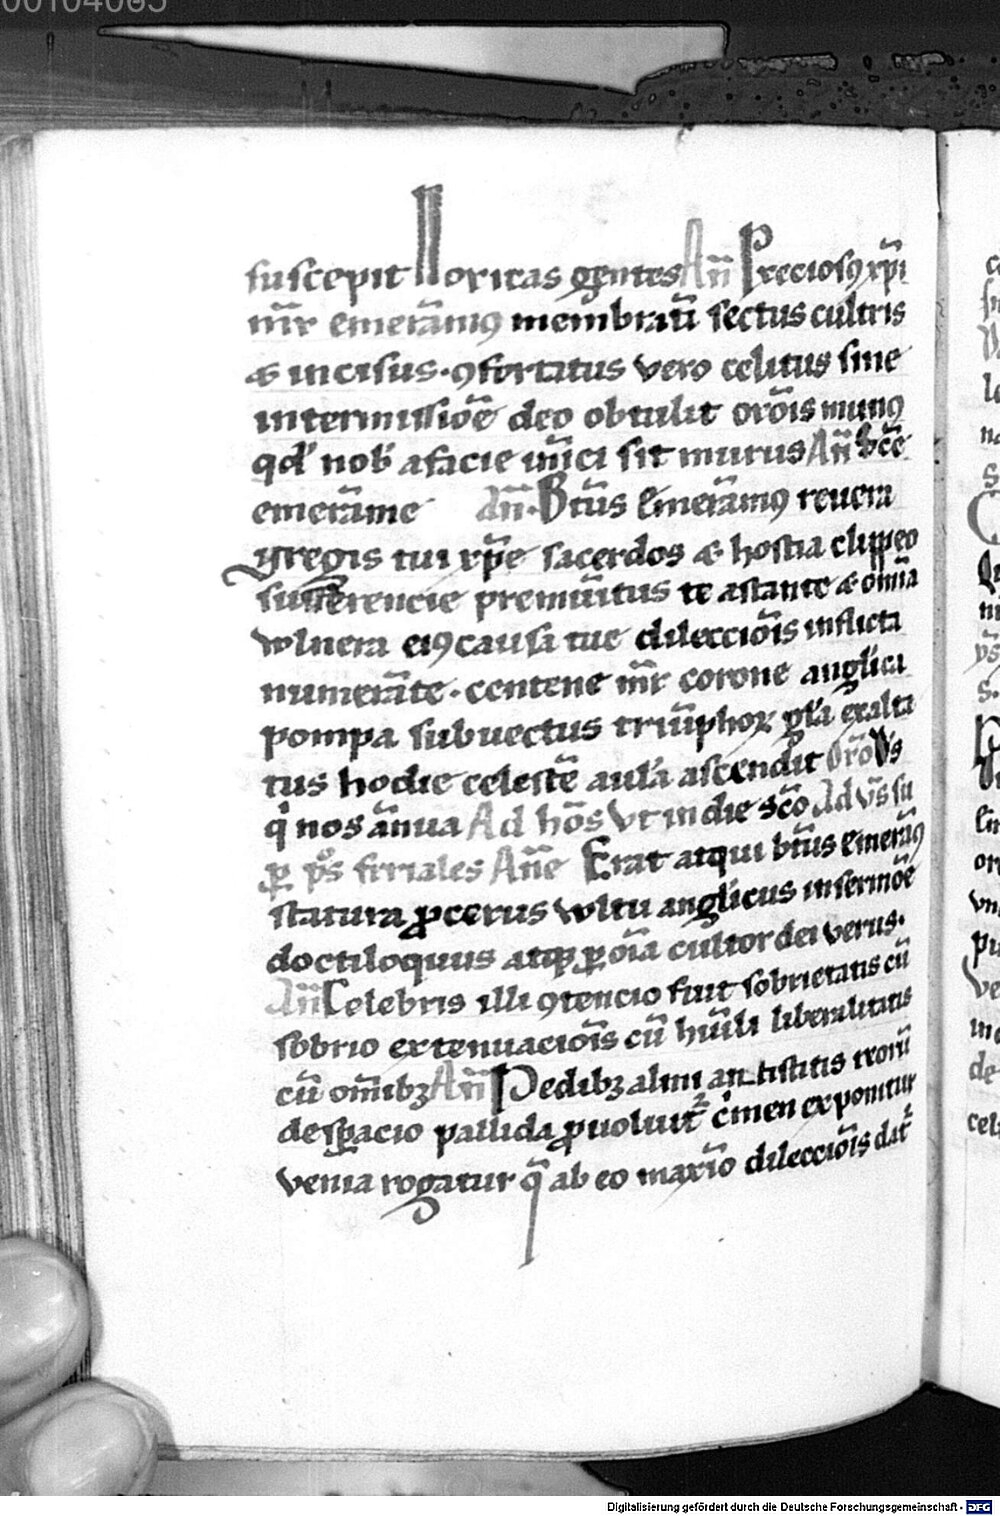 00104065
suscepit Noricas gentes An̄ Preciosꝯ xp̄i
mr̄ emerāmꝯ membratī sectus cultris
& incisus · ꝯfortatus vero celitus sine
intermissiōe deo obtulit orōis munꝯ
qd' nob' a facie inīci sit murus An̄ Sc̄e
emerāme An̄ · Btūs Emerāmꝯ revera
regis tui xp̄e sacerdos & hostia clippeo
sufferencie premūitus te astante & om̄ia
wlnera eiꝯ causa tue dilecciōis inflicta
numerāte · centene mr̄ corone anglica
pompa subuectus triūphoꝝ gl̄a exalta
tus hodie celestē aulā ascendit Oro Ds
qi nos ānua Ad hōs Vt in die sc̄o Ad vs̄ su
ꝑ ps̄ feriales An̄e Erat atqui btūs Emerāꝯ
statura ꝓcerus wltu anglicus in sermōe
doctiloquus atqꝫ ꝑ oīa cultor dei verus ·
An̄ Celebris illi ꝯtencio fuit sobrietatis cū
sobrio extenuaciōis cū hūili liberalitatis
cū om̄ibꝫ An̄ Pedibꝫ almi antistitis
de spacio pallida ꝓuoluit᷑ c̓men exponitur
venia rogatur q̄ ab eo maxīo dilecciōis dat᷑
Digitalisierung gefördert durch die Deutsche Forschungsgemeinschaft - DFG